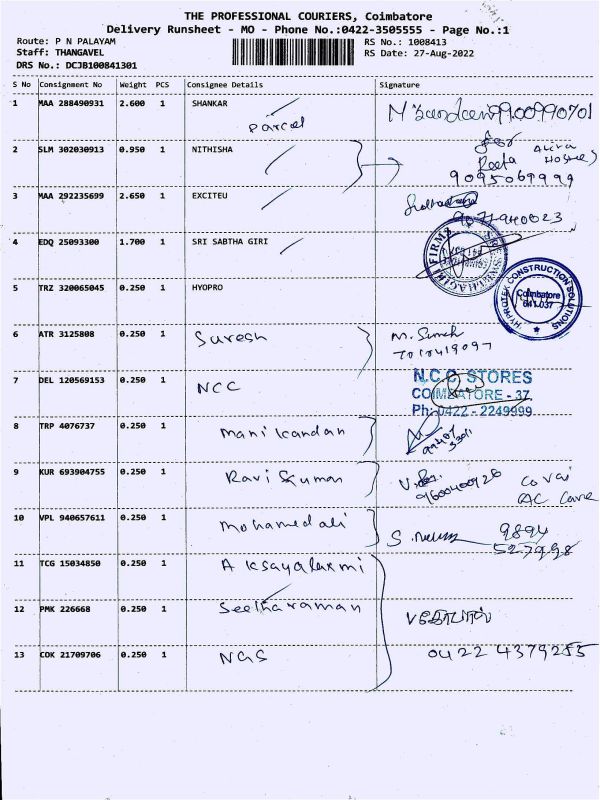 THE PROFESSIONAL COURIERS, Coimbatore
Delivery Runsheet - MO - Phone No.:0422-3505555 - Page No.:1
Route: P N PALAYAM RS No.: 1008413
Staff: THANGAVEL RS Date: 27-Aug-2022
DRS No.: DCJB100841301
S No Consignment No Weight PCS Consignee Details Signature
1 MAA 288490931 2.600 1 SHANKAR 9900990701
Parcel
2 SLM 302030913 0.950 1 NITHISHA
Reeta
9095069999
3 MAA 292235699 2.650 1 EXCITEU
4 EDQ 25093300 1.700 1 SRI SABTHA GIRI
5 TRZ 320065045 0.250 1 HYOPRO
HYPROTEK CONSTRUCTION SOLUTIONS
Coimbatore
641 037
6 ATR 3125808 0.250 1 Suresh
7 DEL 120569153 0.250 1 NCC
N.C.C. STORES
COIMBATORE - 37.
Ph: 0422 - 2249999
8 TRP 4076737 0.250 1 Manikandan
9 KUR 693904755 0.250 1 Ravi Kumar
9600400926 Covai
AC Care
10 VPL 940657611 0.250 1 Mohamed ali
S. 9894
527998
11 TCG 15034850 0.250 1 Aksayalaxmi
12 PMK 226668 0.250 1 Seetharaman
13 COK 21709706 0.250 1 NGS 0422 4379255